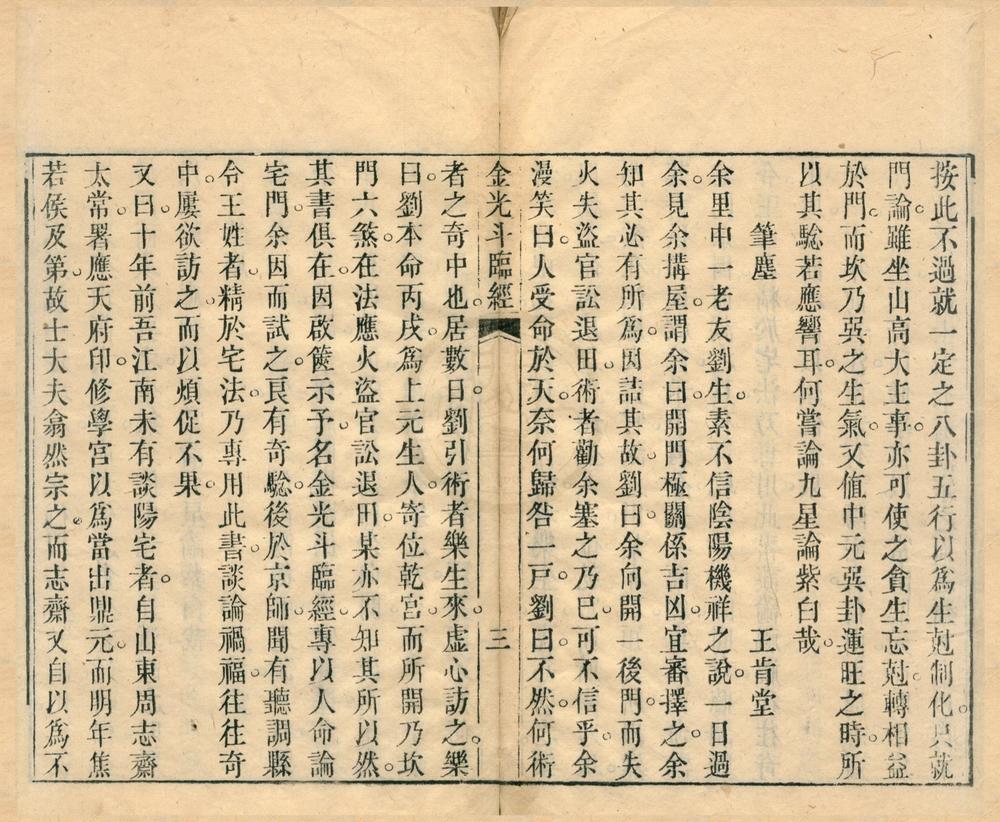 按此不過就一定之八卦五行以爲生尅制化只就
門論雖坐山高大主事亦可使之貪生忘尅轉相益
於門而坎乃巽之生氣又值中元巽卦運旺之時所
以其騐若應響耳何嘗論九星論紫白哉
筆塵 王肯堂
余里中一老友劉生素不信陰陽機祥之說一日過
余見余搆屋謂余曰開門極關係吉凶宜審擇之余
知其必有所爲因詰其故劉曰余向開一後門而失
火失盜官訟退田術者勸余塞之乃已可不信乎余
漫笑曰人受命於天奈何歸咎一戸劉曰不然何術
金光斗臨經 三
者之奇中也居數日劉引術者樂生來虛心訪之樂
曰劉本命丙戌爲上元生人寄位乾宮而所開乃坎
門六煞在法應火盜官訟退田某亦不知其所以然
其書俱在因啟篋示予名金光斗臨經專以人命論
宅門余因而試之良有奇騐後於京師聞有聽調縣
令王姓者精於宅法乃專用此書談論禍福往往奇
中屢欲訪之而以煩促不果
又曰十年前吾江南未有談陽宅者自山東周志齋
太常署應天府印修學宮以爲當出鼎元而明年焦
若侯及第故士大夫翕然宗之而志齋又自以爲不